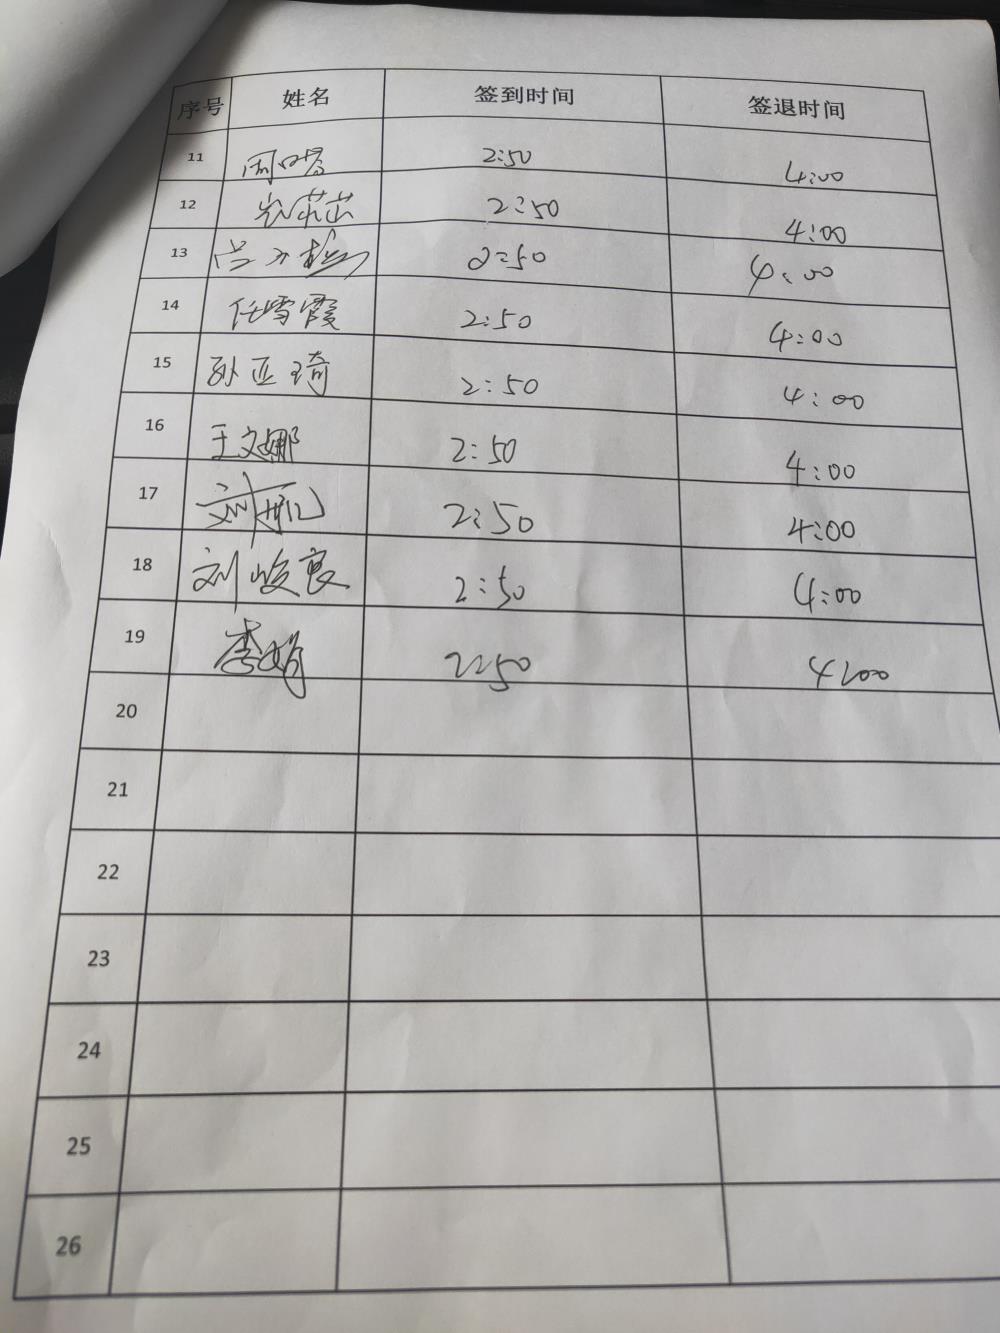 序号 姓名 签到时间 签退时间
11 2:50 4:00
12 2:50 4:00
13 2:50 4:00
14 任雪霞 2:50 4:00
15 孙亚琦 2:50 4:00
16 王文娜 2:50 4:00
17 刘 2:50 4:00
18 刘峻良 2:50 4:00
19 李娟 2:50 4:00
20
21
22
23
24
25
26